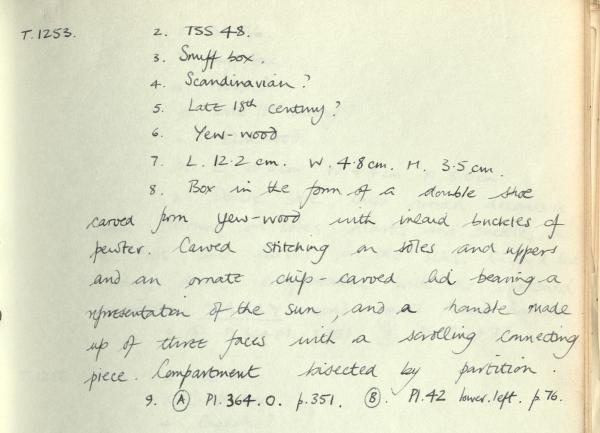 T.1253. 2. TSS 48.
3. Snuff box.
4. Scandinavian?
5. Late 18th century?
6. Yew-wood
7. L. 12.2 cm. W. 4.8 cm. H. 3.5 cm.
8. Box in the form of a double shoe
carved from yew-wood with inlaid buckles of
pewter. Carved stitching on soles and uppers
and an ornate chip-carved lid bearing a
representation of the sun, and a handle made
up of three faces with a scrolling connecting
piece. Compartment bisected by partition.
9. Ⓐ Pl. 364.O. p.351. Ⓑ. Pl.42 lower.left. p.76.